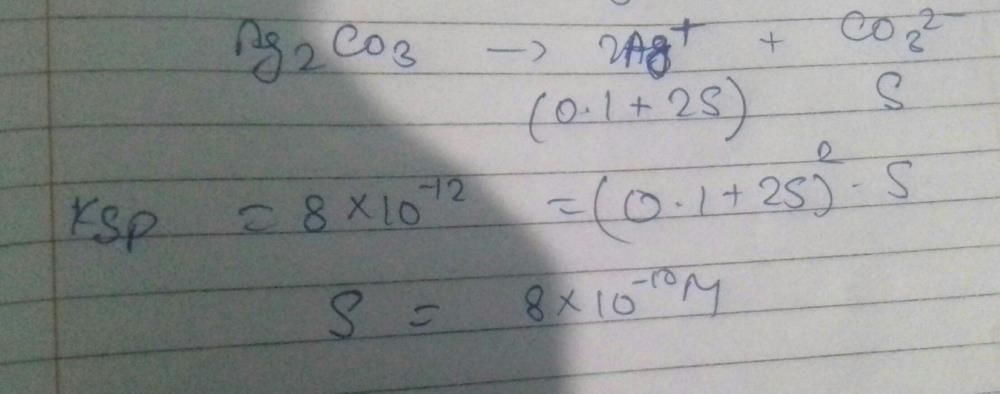 Ag₂CO₃ → 2Ag⁺ + CO₃²⁻
(0.1 + 2S) S
Ksp = 8 × 10⁻¹² = (0.1 + 2S)² · S
S = 8 × 10⁻¹⁰ M